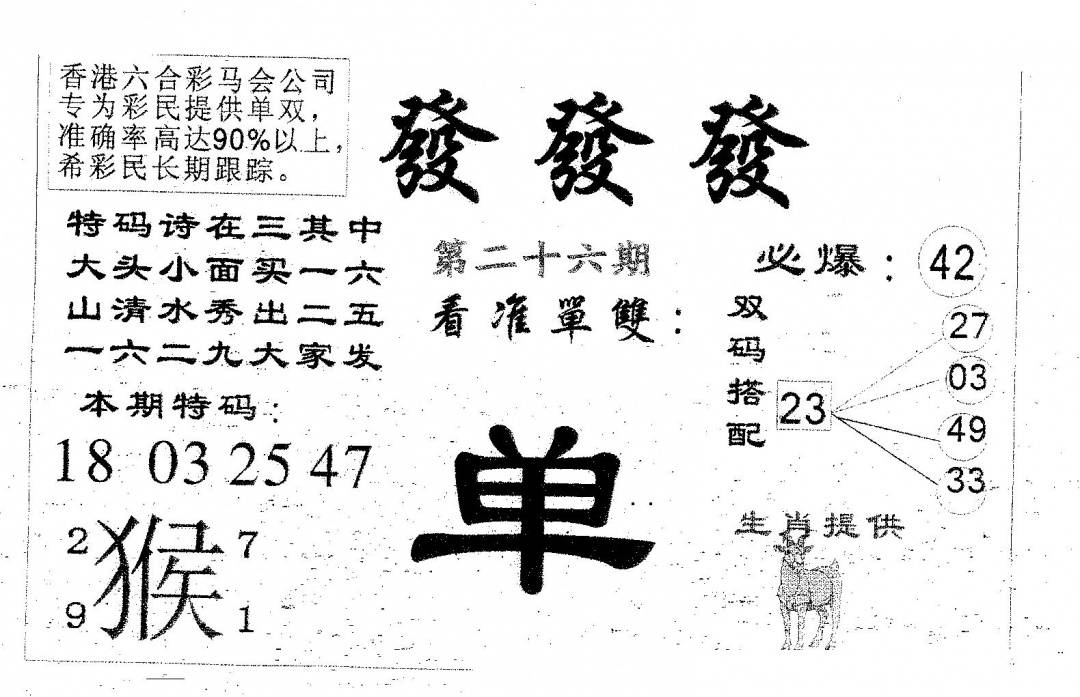 香港六合彩马会公司
专为彩民提供单双，
准确率高达90%以上，
希彩民长期跟踪。
發 發 發
特码诗在三其中
大头小面买一六
山清水秀出二五
一六二九大家发
本期特码：
18 03 25 47
2 7
猴
9 1
第二十六期
看准單雙：
单
必爆：42
双码搭配
23
27
03
49
33
生肖提供